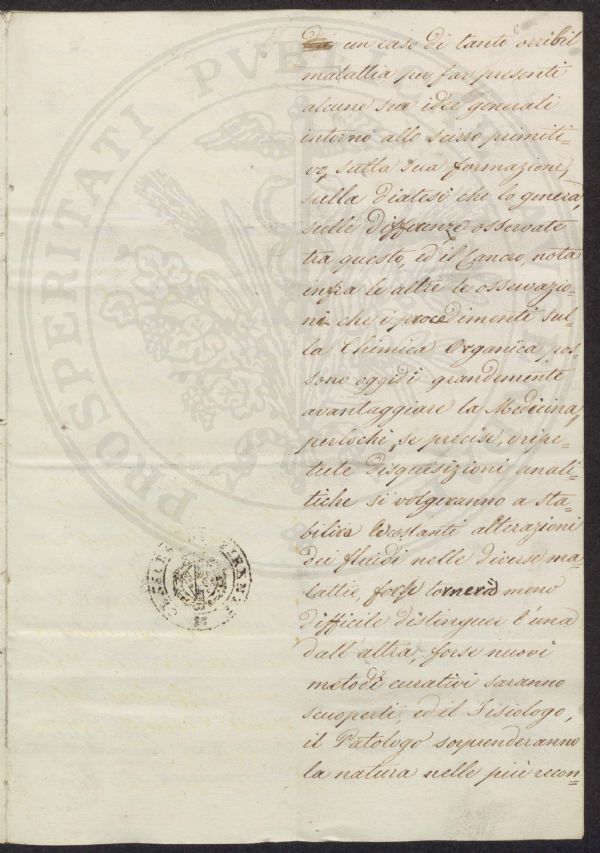 6
un caso di tanto orribil
malattia per far presenti
alcune sue idee generali
intorno allo scirro primiti-
vo, sulla sua formazione,
sulla Diatesi che lo genera,
sulle Differenze osservate
tra questo, ed il Cancro, nota
infra le altre le osservazio-
ni che i procedimenti sul-
la Chimica Organica pos-
sono oggidì grandemente
avantaggiare la Medicina,
perlochè, se precise, e ripe-
tute disquisizioni anali-
tiche si volgeranno a sta-
bilire le costanti alterazioni
dei fluidi nelle diverse ma-
lattie, forse tornerà meno
difficile distinguer l'una
dall'altra, forse nuovi
metodi curativi saranno
scuoperti, ed il Fisiologo,
il Patologo sorprenderanno
la natura nelle più recon-
PROSPERITATI PVBLICAE